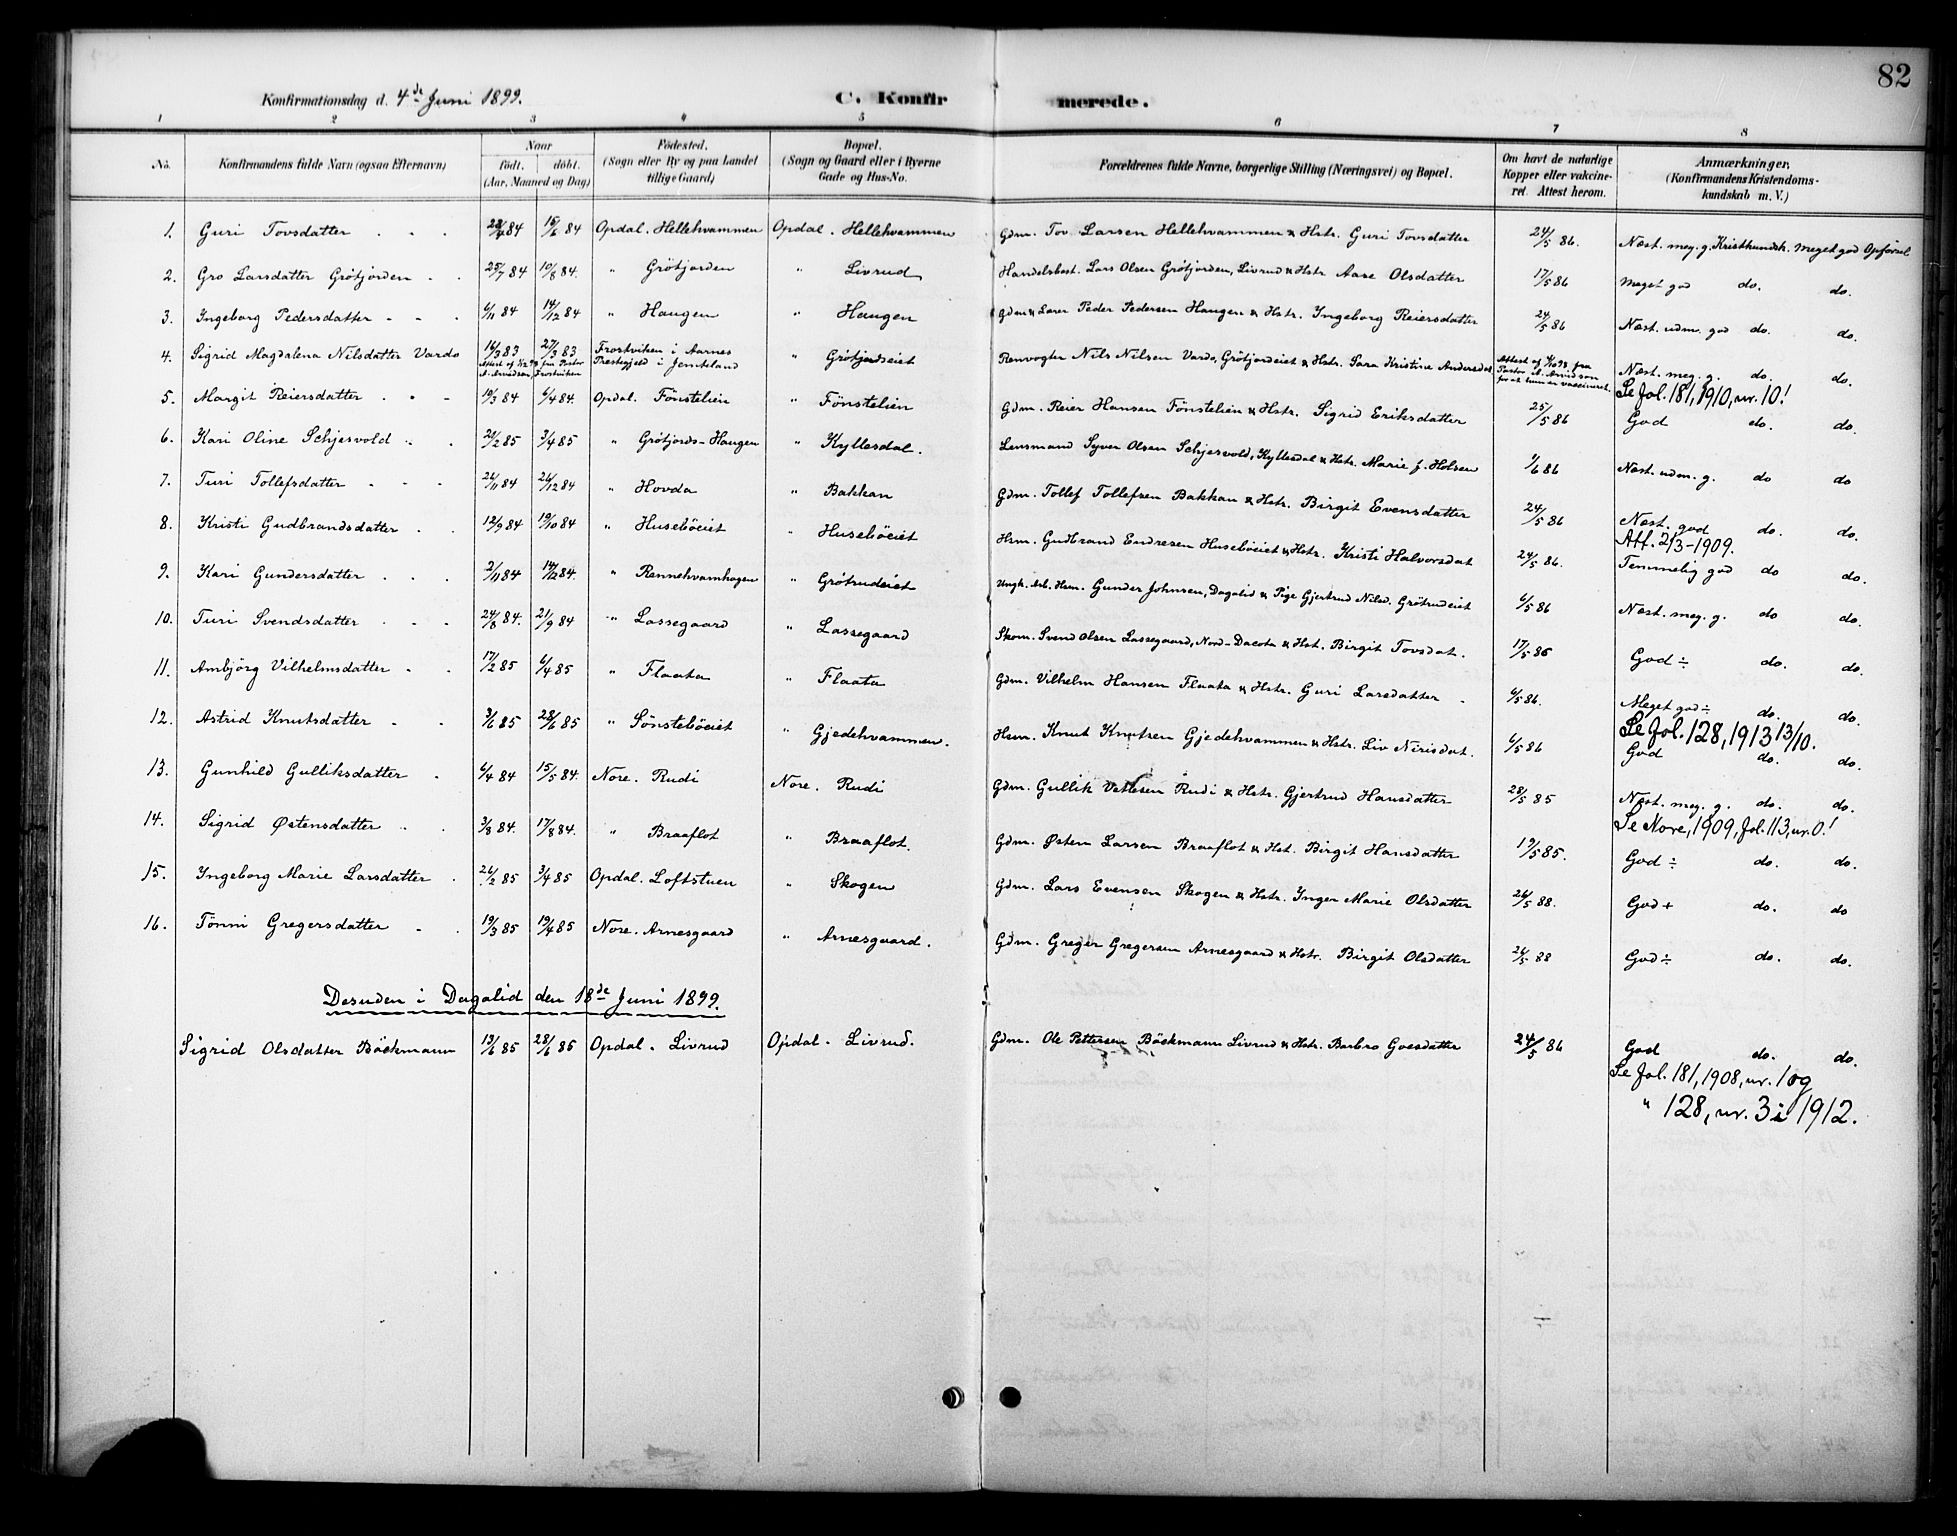 82
Konfirmationsdag d. 4de Juni 1899. C. Konfirmerede.
1 2 3 4 5 6 7 8
No. Konfirmandens fulde Navn (ogsaa Efternavn) Naar født. døbt. (Aar, Maaned og Dag) Fødested. (Sogn eller By og paa Landet tillige Gaard) Bopæl. (Sogn og Gaard eller i Byerne Gade og Hus-No. Forældrenes fulde Navne, borgerlige Stilling (Næringsvei) og Bopæl. Om havt de naturlige Kopper eller vakcineret. Attest herom. Anmærkninger. (Konfirmandens Kristendomskundskab m. V.)
1. Guri Tovsdatter 84 15/6 84 Opdal. Hellehvammen Opdal. Hellehvammen Gdm. Tov Larsen Hellehvammen & Hstr. Guri Tovsdatter 24/5 86. Næst. meg. g. Kristkundsk. Meget god Opførsel
2. Gro Larsdatter Grötjorden 25/7 84 10/8 84. " Grötjorden " Livrud Handelsbest. Lars Olsen Grötjorden, Livrud & Hstr. Aase Olsdatter 17/5 86 Meget god do. do.
3. Ingeborg Pedersdatter 6/11 84 14/12 84 " Haugen " Haugen Gdm & Lærer Peder Pedersen Haugen & Hstr. Ingeborg Reiersdatter 24/5 86 Næst. udm. god do. do.
4. Sigrid Magdalena Nilsdatter Vardo 16/3 83 27/3 83 Frostviken i Aarnes Prestegjeld i Jemteland " Grötjordeiet Renvogter Nils Nilsen Vardo, Grötjordeiet & Hstr. Sara Kristine Andersdat. Attest af 1/10 98 fra Pastor A. Arvidson for at hun er vaccineret. Næst. meg. g. do. do.
Attest af 1/12 98 fra Pastor A. Arvidson, Frostviken
Se fol. 181, 1910, nr. 10!
5. Margit Reiersdatter 10/3 84 6/4 84. Opdal. Fönstelien " Fönstelien Gdm. Reier Hansen Fönstelien & Hstr. Sigrid Eriksdatter 25/5 86 God do. do.
6. Kari Oline Schjesvold 21/2 85 3/4 85 " Grötjords-Haugen " Kyllesdal. Lensmand Syver Olsen Schjesvold, Kyllesdal & Hstr. Marie f. Holsen 1/6 86 Næst. udm. g. do do
7. Turi Tollefsdatter 26/11 84 26/12 84 " Hovda " Bakkan Gdm. Tollef Tollefsen Bakkan & Hstr. Birgit Evensdatter 24/5 86 Næst. god do. do.
Att. 2/3-1909.
8. Kristi Gudbrandsdatter 12/9 84 19/10 84 " Huseböeiet " Huseböeiet Hsm. Gudbrand Endresen Huseböeiet & Hstr. Kristi Halvorsdat 24/5 86. Temmelig god do do.
9. Kari Gundersdatter 2/11 84 14/12 84. " Rennehvamhagen " Grötrudeiet Ungk. Arb. Hsm. Gunder Johnsen, Dagalid & Pige Gjertrud Nilsd. Grötrudeiet 6/5 86 Næst. meg. g. do do.
10. Turi Svendsdatter 24/8 84. 21/9 84 " Lassegaard " Lassegaard Skom. Svend Olsen Lassegaard, Nord-Dacota & Hst. Birgit Tovsdat. 17/5 86 God ÷ do. do.
11. Ambjörg Vilhelmsdatter 17/2 85 6/4 85 " Flaata " Flaata Gdm. Vilhelm Hansen Flaata & Hstr. Guri Larsdatter 6/5 86. Meget god ÷ do. do.
Se fol. 128, 1913 13/10.
12. Astrid Knutsdatter 3/6 85 28/6 85 " Sönsteböeiet " Gjedehvammen. Hsm. Knut Knutsen Gjedehvammen & Hstr. Liv Nirisdat. 6/5 86 God do. do.
13. Gunhild Gulliksdatter 6/4 84 15/5 84. Nore. Rudi Nore. Rudi Gdm. Gullik Vetlesen Rudi & Hstr. Gjertrud Hansdatter 28/5 85 Næst. meg. g. do. do.
Se Nore, 1909, fol. 113, nr. 0!
14. Sigrid Østensdatter 3/8 84. 17/8 84. " Braaflot " Braaflot. Gdm. Østen Larsen Braaflot & Hst. Birgit Hansdatter 19/5 85. God ÷ do. do.
15. Ingeborg Marie Larsdatter 26/2 85 3/4 85 Opdal. Loftstuen " Skogen Gdm. Lars Evensen Skogen & Hstr. Inger Marie Olsdatter 26/5 88. God + do. do
16. Tönni Gregersdatter 19/3 85 19/4 85 Nore. Arnesgaard " Arnesgaard. Gdm. Greger Gregersen Arnesgaard & Hstr. Birgit Olsdatter 26/5 88 God ÷ do. do.
Desuden i Dagalid den 18de Juni 1899.
Sigrid Olsdatter Böckmann 13/6 85 28/6 85 Opdal. Livrud Opdal. Livrud. Gdm. Ole Pettersen Böckmann Livrud & Hstr. Barbro Goesdatter 24/5 86 God do. do.
Se fol. 181, 1908, nr. 1 og
" 128, nr. 3 i 1912.